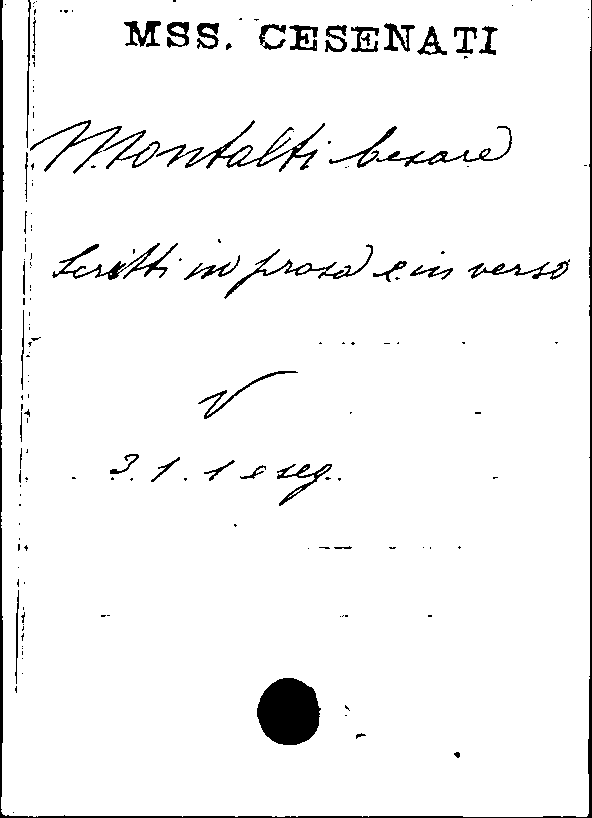 MSS. CESENATI
Montalti Cesare
Scritti in prosa e in verso
V
3. 1. 1 e seg.